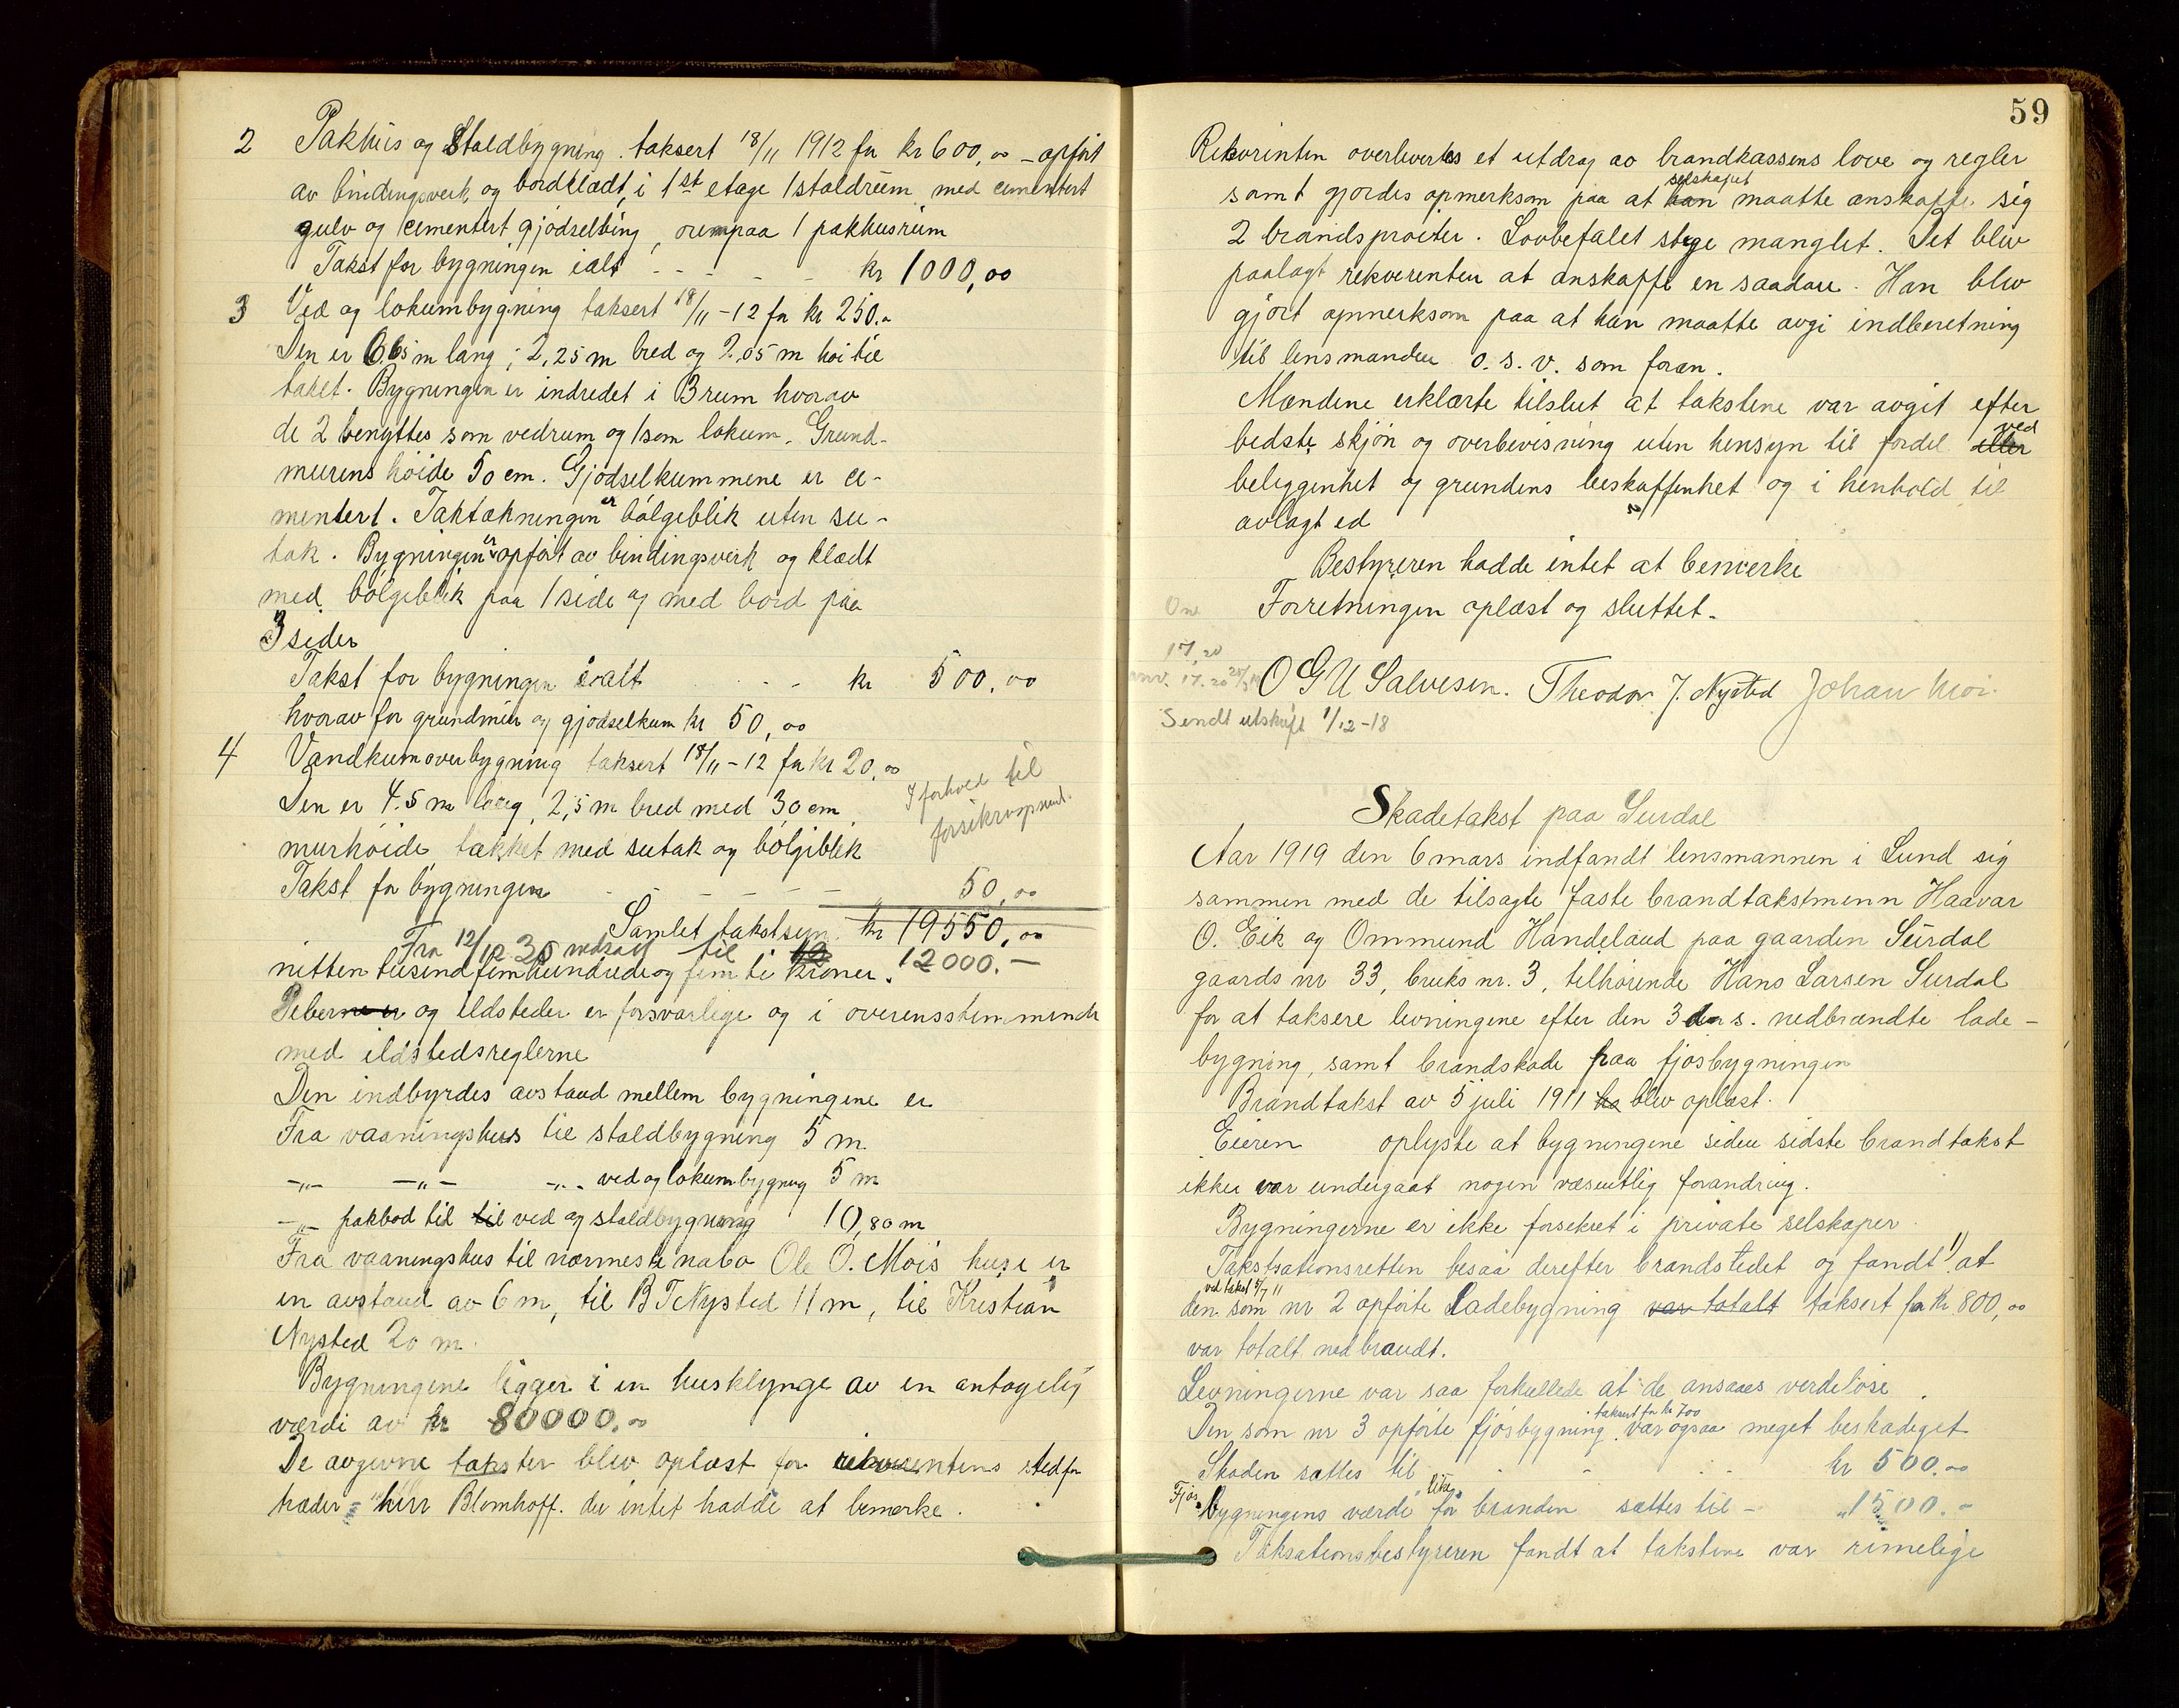 2 Pakhus og Staldbygning. taksert 18/11 1912 for kr 600,00 - opført
av bindingsverk og bordklædt, i 1st etage 1 staldrum med cementert
gulv og cementert gjødselbing, ovenpaa 1 pakhusrum
Takst for bygningen ialt - - - - - kr 1000,00
3 Ved og lokumbygning taksert 18/11-12 for kr 250.-
Den er 6,65 m lang; 2,25 m bred og 2.05 m høi til
taket. Bygningen er indredet i 3 rum hvorav
de 2 benyttes som vedrum og 1 som lokum. Grund-
murens høide 50 cm. Gjødselkummene er ce-
mentert. Taktækningen er bølgeblik uten su-
tak. Bygningen er opført av bindingsverk og klædt
med bølgeblik paa 1 side og med bord paa
3 sider
Takst for bygningen ialt - - - kr 500,00
hvorav for grundmur og gjødselkum kr 50,00
4 Vandkumoverbygning taksert 18/11-12 for kr 20,00
Den er 4.5 m lang, 2,5 m bred med 30 cm
I forhold til
murhøide, tækket med sutak og bølgeblik
Takst for bygningen - - - - - " 50,00
Samlet takstsum kr 19550,00
Fra 12/12 30 nedsat til 12000.-
nitten tusind femhundrede og femti kroner.
Piberne er og ildsteder er forsvarlige og i overensstemmende
med ildstedsreglerne
Den indbyrdes avstand mellem bygningene er
Fra vaaningshus til staldbygning 5 m
-"- -"- -"- ved og lokumbygning 5 m
-"- pakbod til til ved og staldbygning 10,80 m
Fra vaaningshus til nærmeste nabo Ole O. Mois huse er
en avstand av 6 m, til B T Nysted 11 m, til Kristian
Nysted 20 m.
Bygningene ligger i en husklynge av en antagelig
værdi av kr 80000.00
De avgivne takster blev oplæst for rekvirentens stedfor
træder - herr Blomhoff. der intet hadde at bemerke.
59
Rekvirenten overlevertes et utdrag av brandkassens love og regler
samt gjordes opmerksom paa at han selskapet maatte anskaffe sig
2 brandsprøiter. Lovbefalet stige manglet. Det blev
paalagt rekvirenten at anskaffe en saadan. Han blev
gjort opmerksom paa at han maatte avgi indberetning
til lensmanden o. s. v. som foran.
Mændene erklærte tilslut at takstene var avgit efter
bedste skjøn og overbevisning uten hensyn til fordel eller ved
beliggenhet og grundens beskaffenhet og i henhold til
avlagt ed
Bestyreren hadde intet at bemerke
Forretningen oplæst og sluttet.
17,20
O G U Salvesen. Theodor J. Nysted Johan Moi.
Sendt utskrift 1/12-18
Skadetakst paa Surdal
Aar 1919 den 6 mars indfandt lensmannen i Lund sig
sammen med de tilsagte faste brandtakstmenn Haavar
O. Eik og Ommund Handeland paa gaarden Surdal
gaards nr 33, bruks nr. 3, tilhørende Hans Larsen Surdal
for at taksere levningene efter den 3 ds. nedbrændte lade-
bygning, samt brandskade paa fjøsbygningen
Brandtakst av 5 juli 1911 ha blev oplæst.
Eieren oplyste at bygningene siden sidste brandtakst
ikke var undergaat nogen væsentlig forandring.
Bygningerne er ikke forsekret i private selskaper
Takstsationsretten besaa derefter brandstedet og fandt 1) at
den ved takst 5/7 11 som nr 2 opførte Ladebygning var totalt taksert for kr. 800,00
var totalt nedbrændt.
Levningerne var saa forkullede at de ansaaes verdeløse.
Den som nr 3 opførte fjøsbygning taksert for kr 700 var ogsaa meget beskadeget
Skaden sættes til - - - kr 500.00
Fjøs bygningens værdi like før branden sættes til - " 1500.-
Taksationsbestyreren fandt at takstene var rimelige